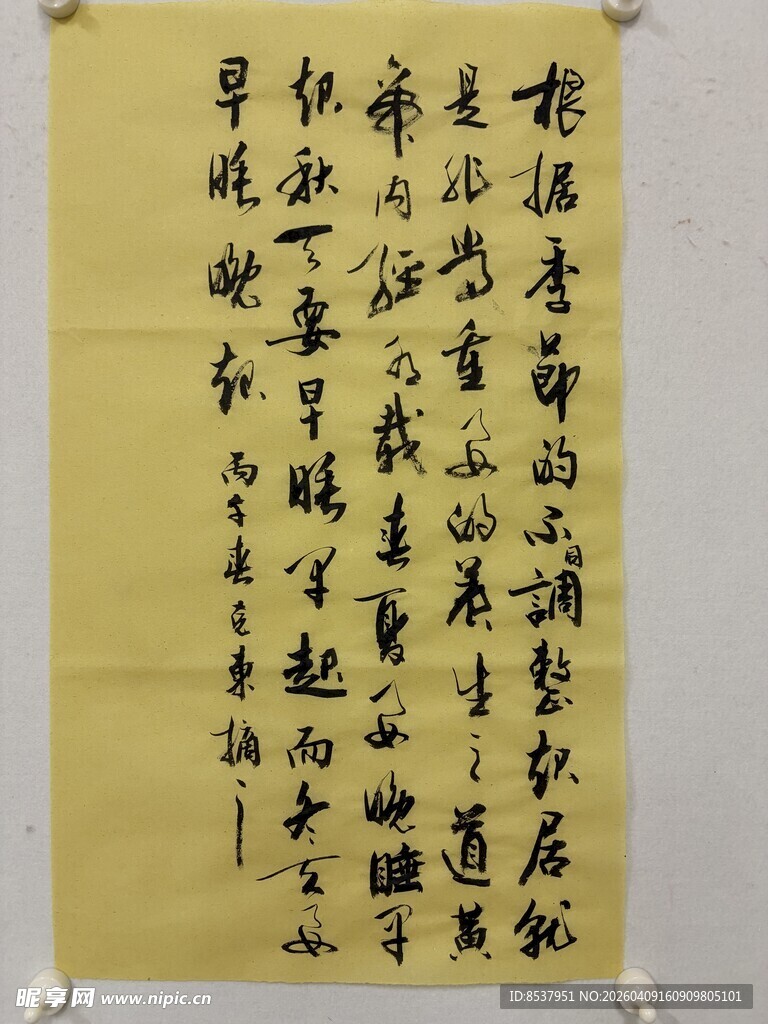 根据季節的不同調整起居就
是非常重要的養生之道黃
帝内經有載春夏要晚睡早
起秋天要早睡早起而冬天要
早睡晚起
丙午春克東摘之
昵享网 www.nipic.cn
ID:8537951 NO:20260409160909805101